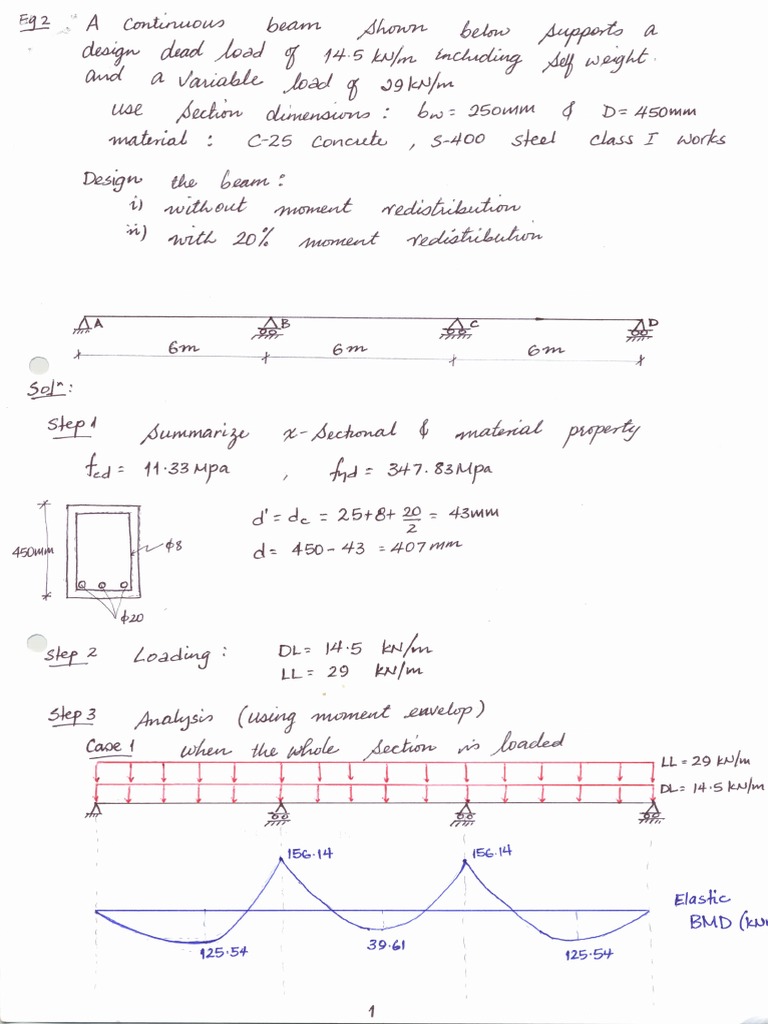 Eg 2 A continuous beam shown below supports a
design dead load of 14.5 kN/m including self weight.
and a variable load of 29 kN/m
use section dimensions : bw = 250mm & D = 450mm
material : C-25 concrete , S-400 steel class I works
Design the beam :
i) without moment redistribution
ii) with 20% moment redistribution
A B C D
6m 6m 6m
Solⁿ:
Step 1 Summarize x-sectional & material property
fcd = 11.33 Mpa , fyd = 347.83 Mpa
d' = dc = 25+8+20/2 = 43mm
d = 450 - 43 = 407 mm
450mm
φ8
φ20
Step 2 Loading : DL = 14.5 kN/m
LL = 29 kN/m
Step 3 Analysis (using moment envelop)
Case 1 when the whole section is loaded
LL = 29 kN/m
DL = 14.5 kN/m
156.14 156.14
Elastic
BMD (kN
125.54 39.61 125.54
1